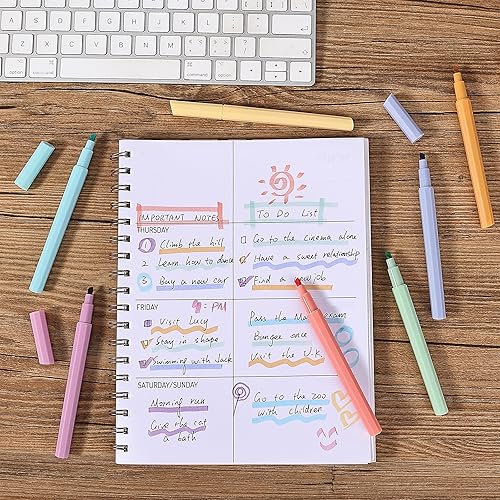 IMPORTANT NOTES
To Do List
THURSDAY
1 Climb the hill
2 Learn how to dance
3 Buy a new car
Go to the cinema alone
Have a sweet relationship
Find a new job
FRIDAY
9:PM
Visit Lucy
Stay in shape
Swimming with Jack
Pass the exam
Bungee once
Visit the U.K.
SATURDAY/SUNDAY
Morning run
Give the cat
a bath
Go to the zoo
with children